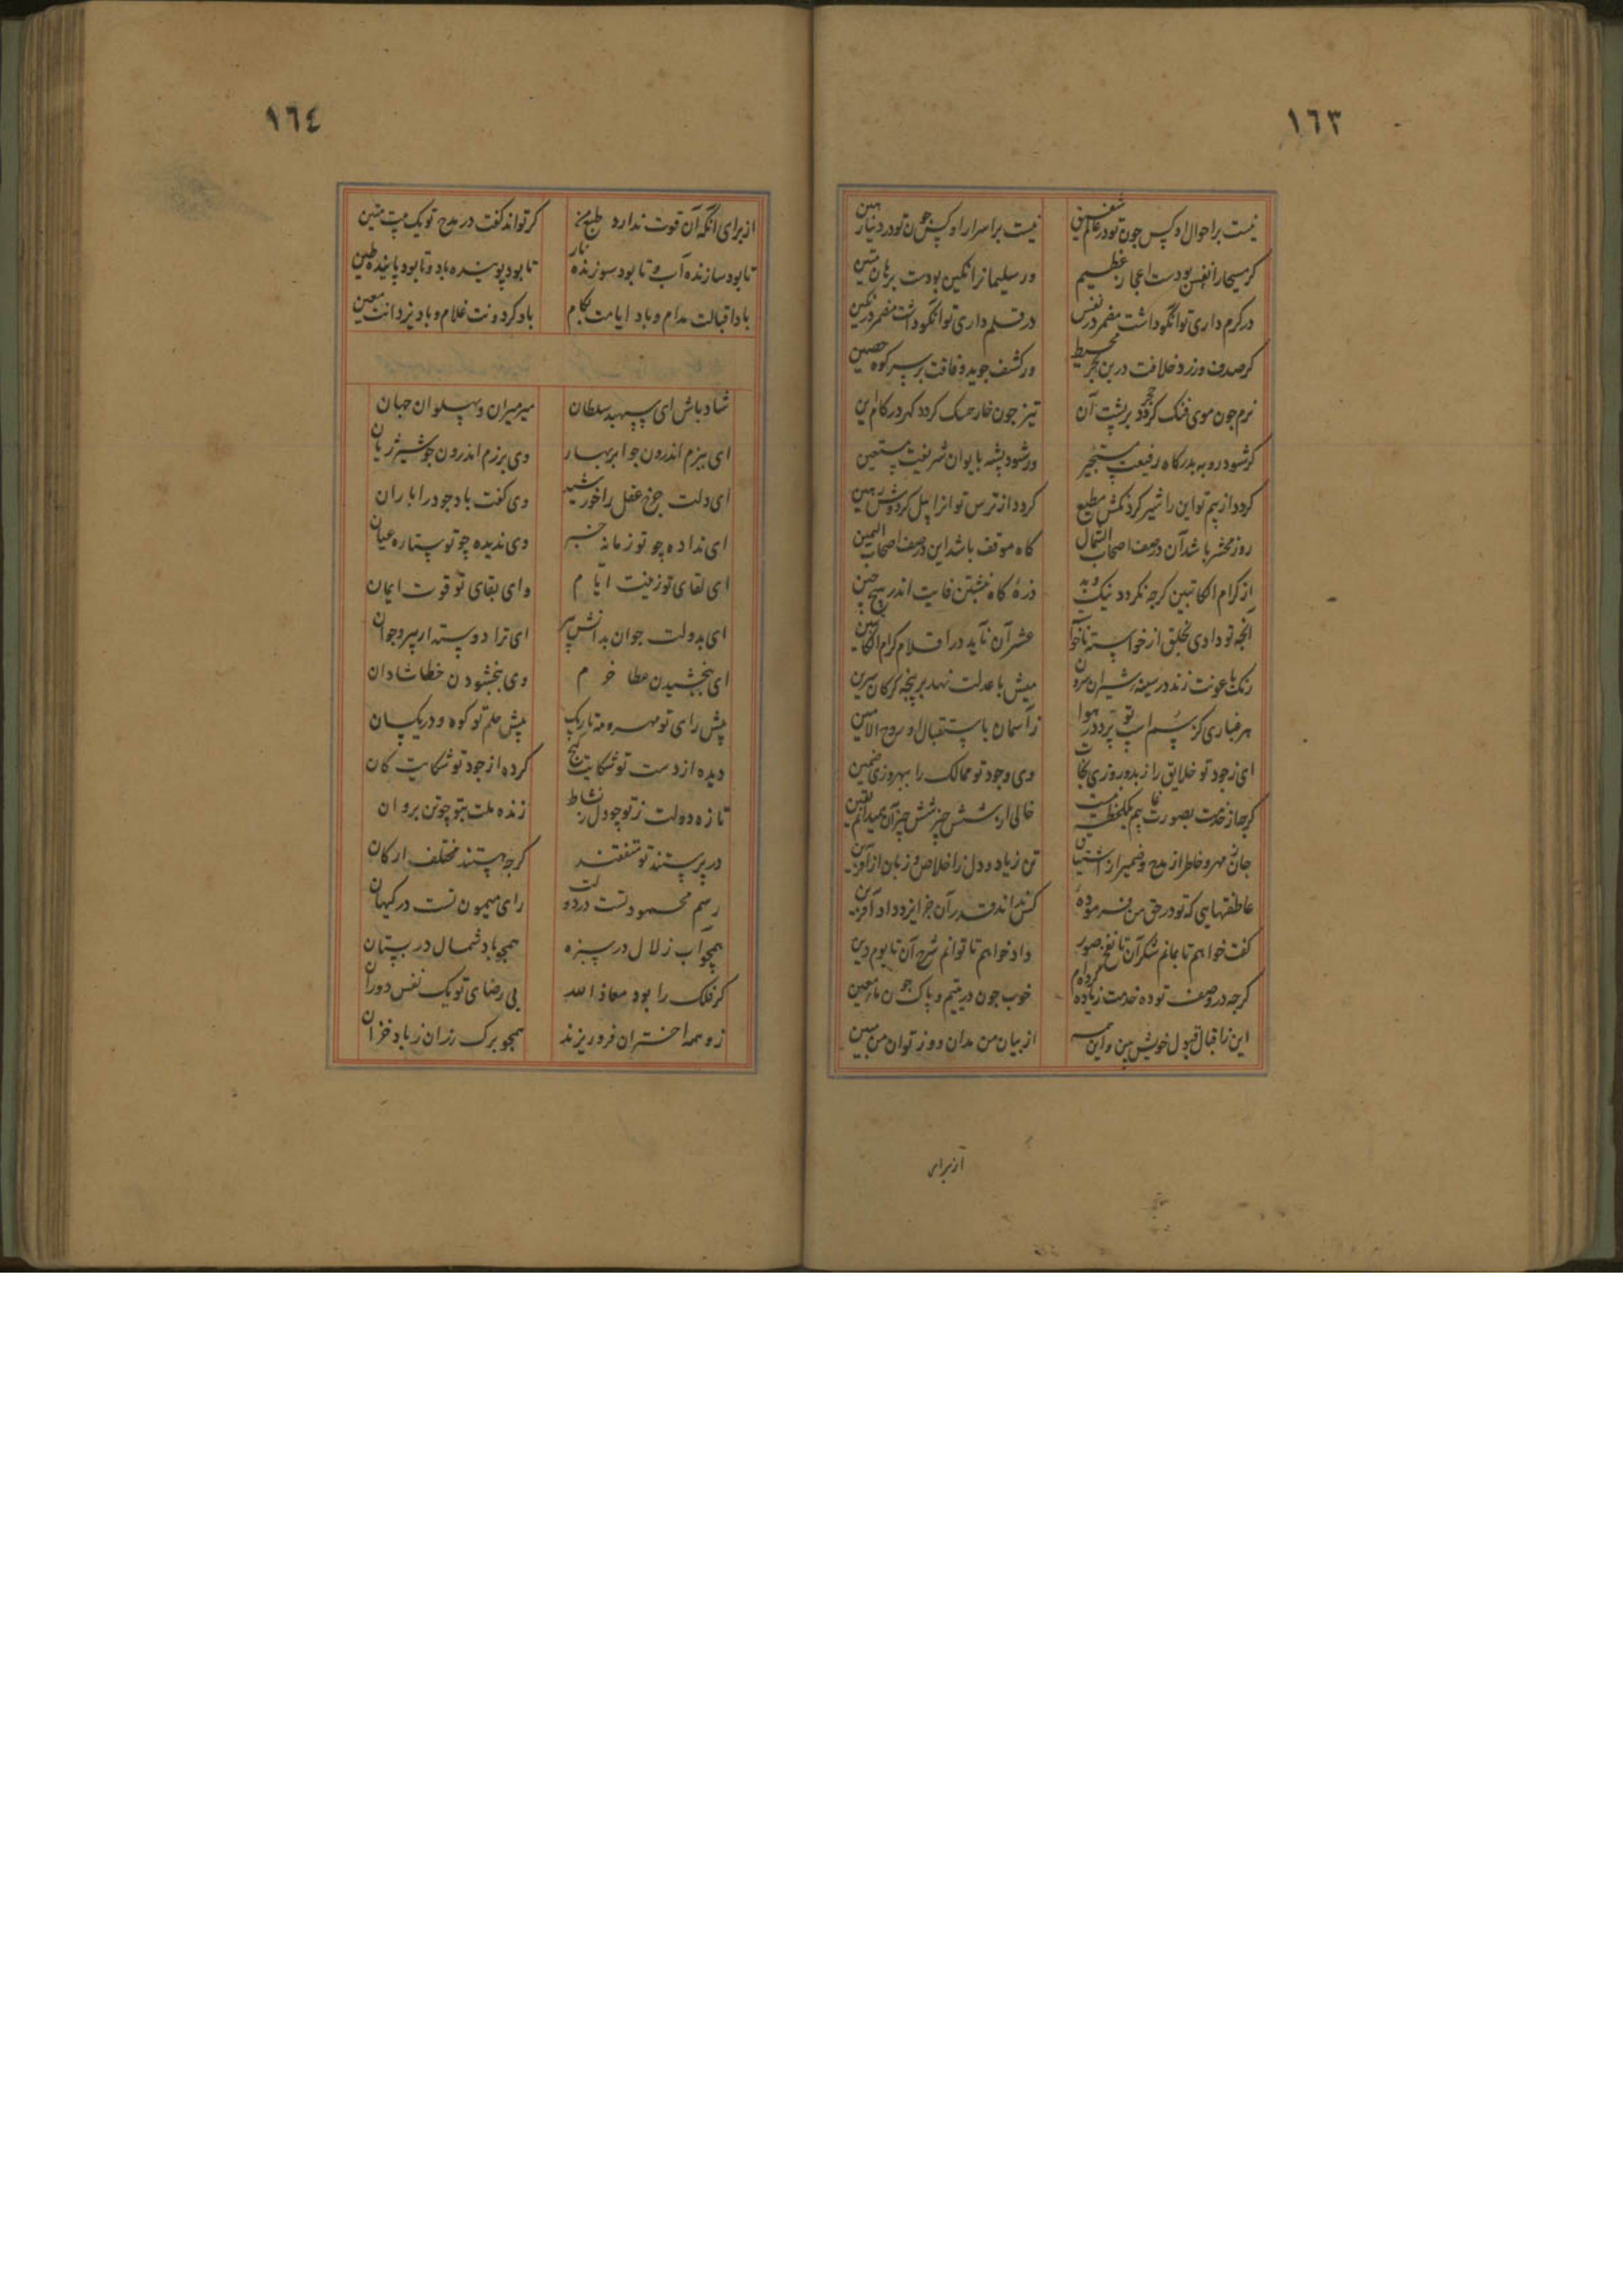 ١٦٣
نیست بر احوال او کس چون تو در عالم شفیق
نیست بر اسرار او کس چون تو در دنیا
کر مسیحا را نفس بودست اعجاز عظیم
ور سلیمانرا نکین بودست برهان متین
در کرم داری تو آنکو داشت مضمر در نفس
در قلم داری تو آنکو داشت مضمر در نکین
کر صدف ورزد خلافت در بن بحر محیط
ور کشف جوید وفاقت بر سر کوه حصین
نرم چون موی فنک کردد حجر بر پشت آن
تیز چون خار حسک کردد کهر در کام این
کر شود روبه بدرکاه رفیعت مستجیر
ور شود پشه بایوان شریفت مستعین
کردد از بیم تو این را شیر کردنکش مطیع
کردد از ترس تو انرا پیل کردون رهین
روز محشر باشد آن در صف اصحاب الشمال
کاه موقف باشد این در صف اصحاب الیمین
از کرام الکاتبین کرچه نکردد نیک و بد
ذرهٔ کاه نبشتن فایت اندر هیچ حین
آنچه تو دادی بخلق از خواسته ناخواسته
عشر آن ناید در اقلام کرام الکاتبین
رنک با عونت زند در سینه شیران سرون
میش با عدلت نهد بر پنجه کرکان سرین
هر غباری کز سم اسب تو پرد در هوا
ز آسمان باستقبال او روح الامین
ای ز جود تو خلایق را ز بد روزی نجات
وی وجود تو ممالک را ببهروزی ضمین
کرچه از خدمت بصورت غایبم یکلحظه نیست
خالی از شش چیز شش چیز آن
جان ز مهر و خاطر از مدح و ضمیر از اشتیاق
تن ز یاد و دل ز اخلاص و زبان از آفرین
عاطفتهایی که تو در حق من فرموده
کس نداند قدر آن جز ایزد داد آفرین
کفت خواهم تا بمانم شکر آن تا نفخ صور
داد خواهم تا توانم شرح آن تا یوم دین
کرچه در وصف تو ده خدمت زیاده کرده‌ام
خوب چون در یتیم و پاک چون ماء معین
این ز اقبال قبول خویش بین و این همه
از بیان من مدان وز توان من مبین
از برای
١٦٤
از برای آنکه آن قوت ندارد طبع من
کر تواند کفت در مدح تو یک بیت متین
تا بود سازنده آب و تا بود سوزنده نار
تا بود پوینده باد و تا بود پاینده طین
باد اقبالت مدام و باد ایامت بکام
باد کردونت غلام و باد یزدانت معین
شاد باش ای سپهبد سلطان
میر میران و پهلوان جهان
ای ببزم اندرون چو ابر بهار
وی برزم اندرون چو شیر ژیان
ای دلت چرخ عقل را خورشید
وی کفت باد جود را باران
ای نداده چو تو زمانه خبر
وی ندیده چو تو ستاره عیان
ای لقای تو زینت ایام
وای بقای تو قوت ایمان
ای بدولت جوان بدانش پیر
ای ترا دوستدار پیر و جوان
ای ببخشیدن عطا خرم
وی ببخشودن خطا شادان
پیش رای تو مهر و مه تاریک
پیش حلم تو کوه و دریکسان
دیده از دست تو شکایت کنج
کرده از جود تو شکایت کان
تازه دولت ز تو چو دل ز نشاط
زنده ملت بتو چو تن بروان
در پرستند تو متفقند
کرچه هستند مختلف ارکان
رسم محمود تست در دولت
رای میمون تست در کیهان
همچو آب زلال در سبزه
همچو باد شمال در بستان
کر فلک را بود معاذ الله
بی رضای تو یک نفس دوران
زو همه اختران فرو ریزند
همچو برک رزان ز باد خزان